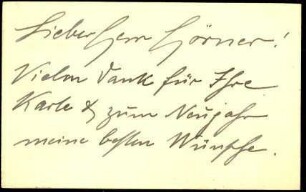 Lieber Herr Görner!
Vielen Dank für Ihre
Karte & zum Neujahr
meine besten Wünsche.